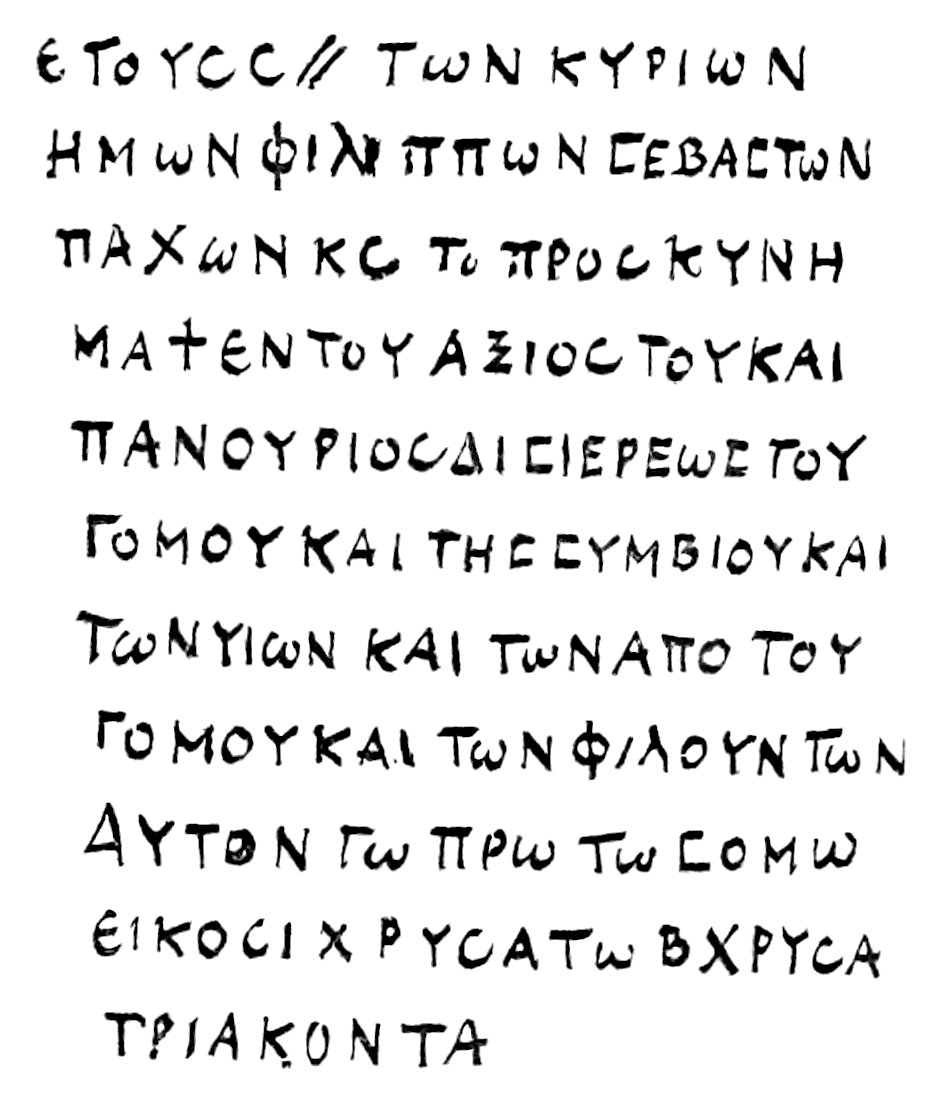 ΕΤΟΥϹϹ// ΤωΝ ΚΥΡΙωΝ
ΗΜωΝ ΦΙΛΙΠΠωΝ ϹΕΒΑϹΤωΝ
ΠΑΧωΝ ΚϹ ΤοΠΡΟϹΚΥΝΗ
ΜΑ†ΕΝΤΟΥ ΑΞΙΟϹ ΤΟΥΚΑΙ
ΠΑΝΟΥΡΙΟϹΔΙϹΙΕΡΕωϹ ΤΟΥ
ΓΟΜΟΥ ΚΑΙ ΤΗϹ ϹΥΜΒΙΟΥ ΚΑΙ
ΤωΝ ΥΙωΝ ΚΑΙ ΤωΝ ΑΠΟ ΤΟΥ
ΓΟΜΟΥ ΚΑΙ ΤωΝ ΦΙΛΟΥΝΤωΝ
ΑΥΤΟΝ ΓωΠΡωΤωϹΟΜω
ΕΙΚΟϹΙ ΧΡΥϹΑ Τω Β ΧΡΥϹΑ
ΤΡΙΑΚΟΝΤΑ